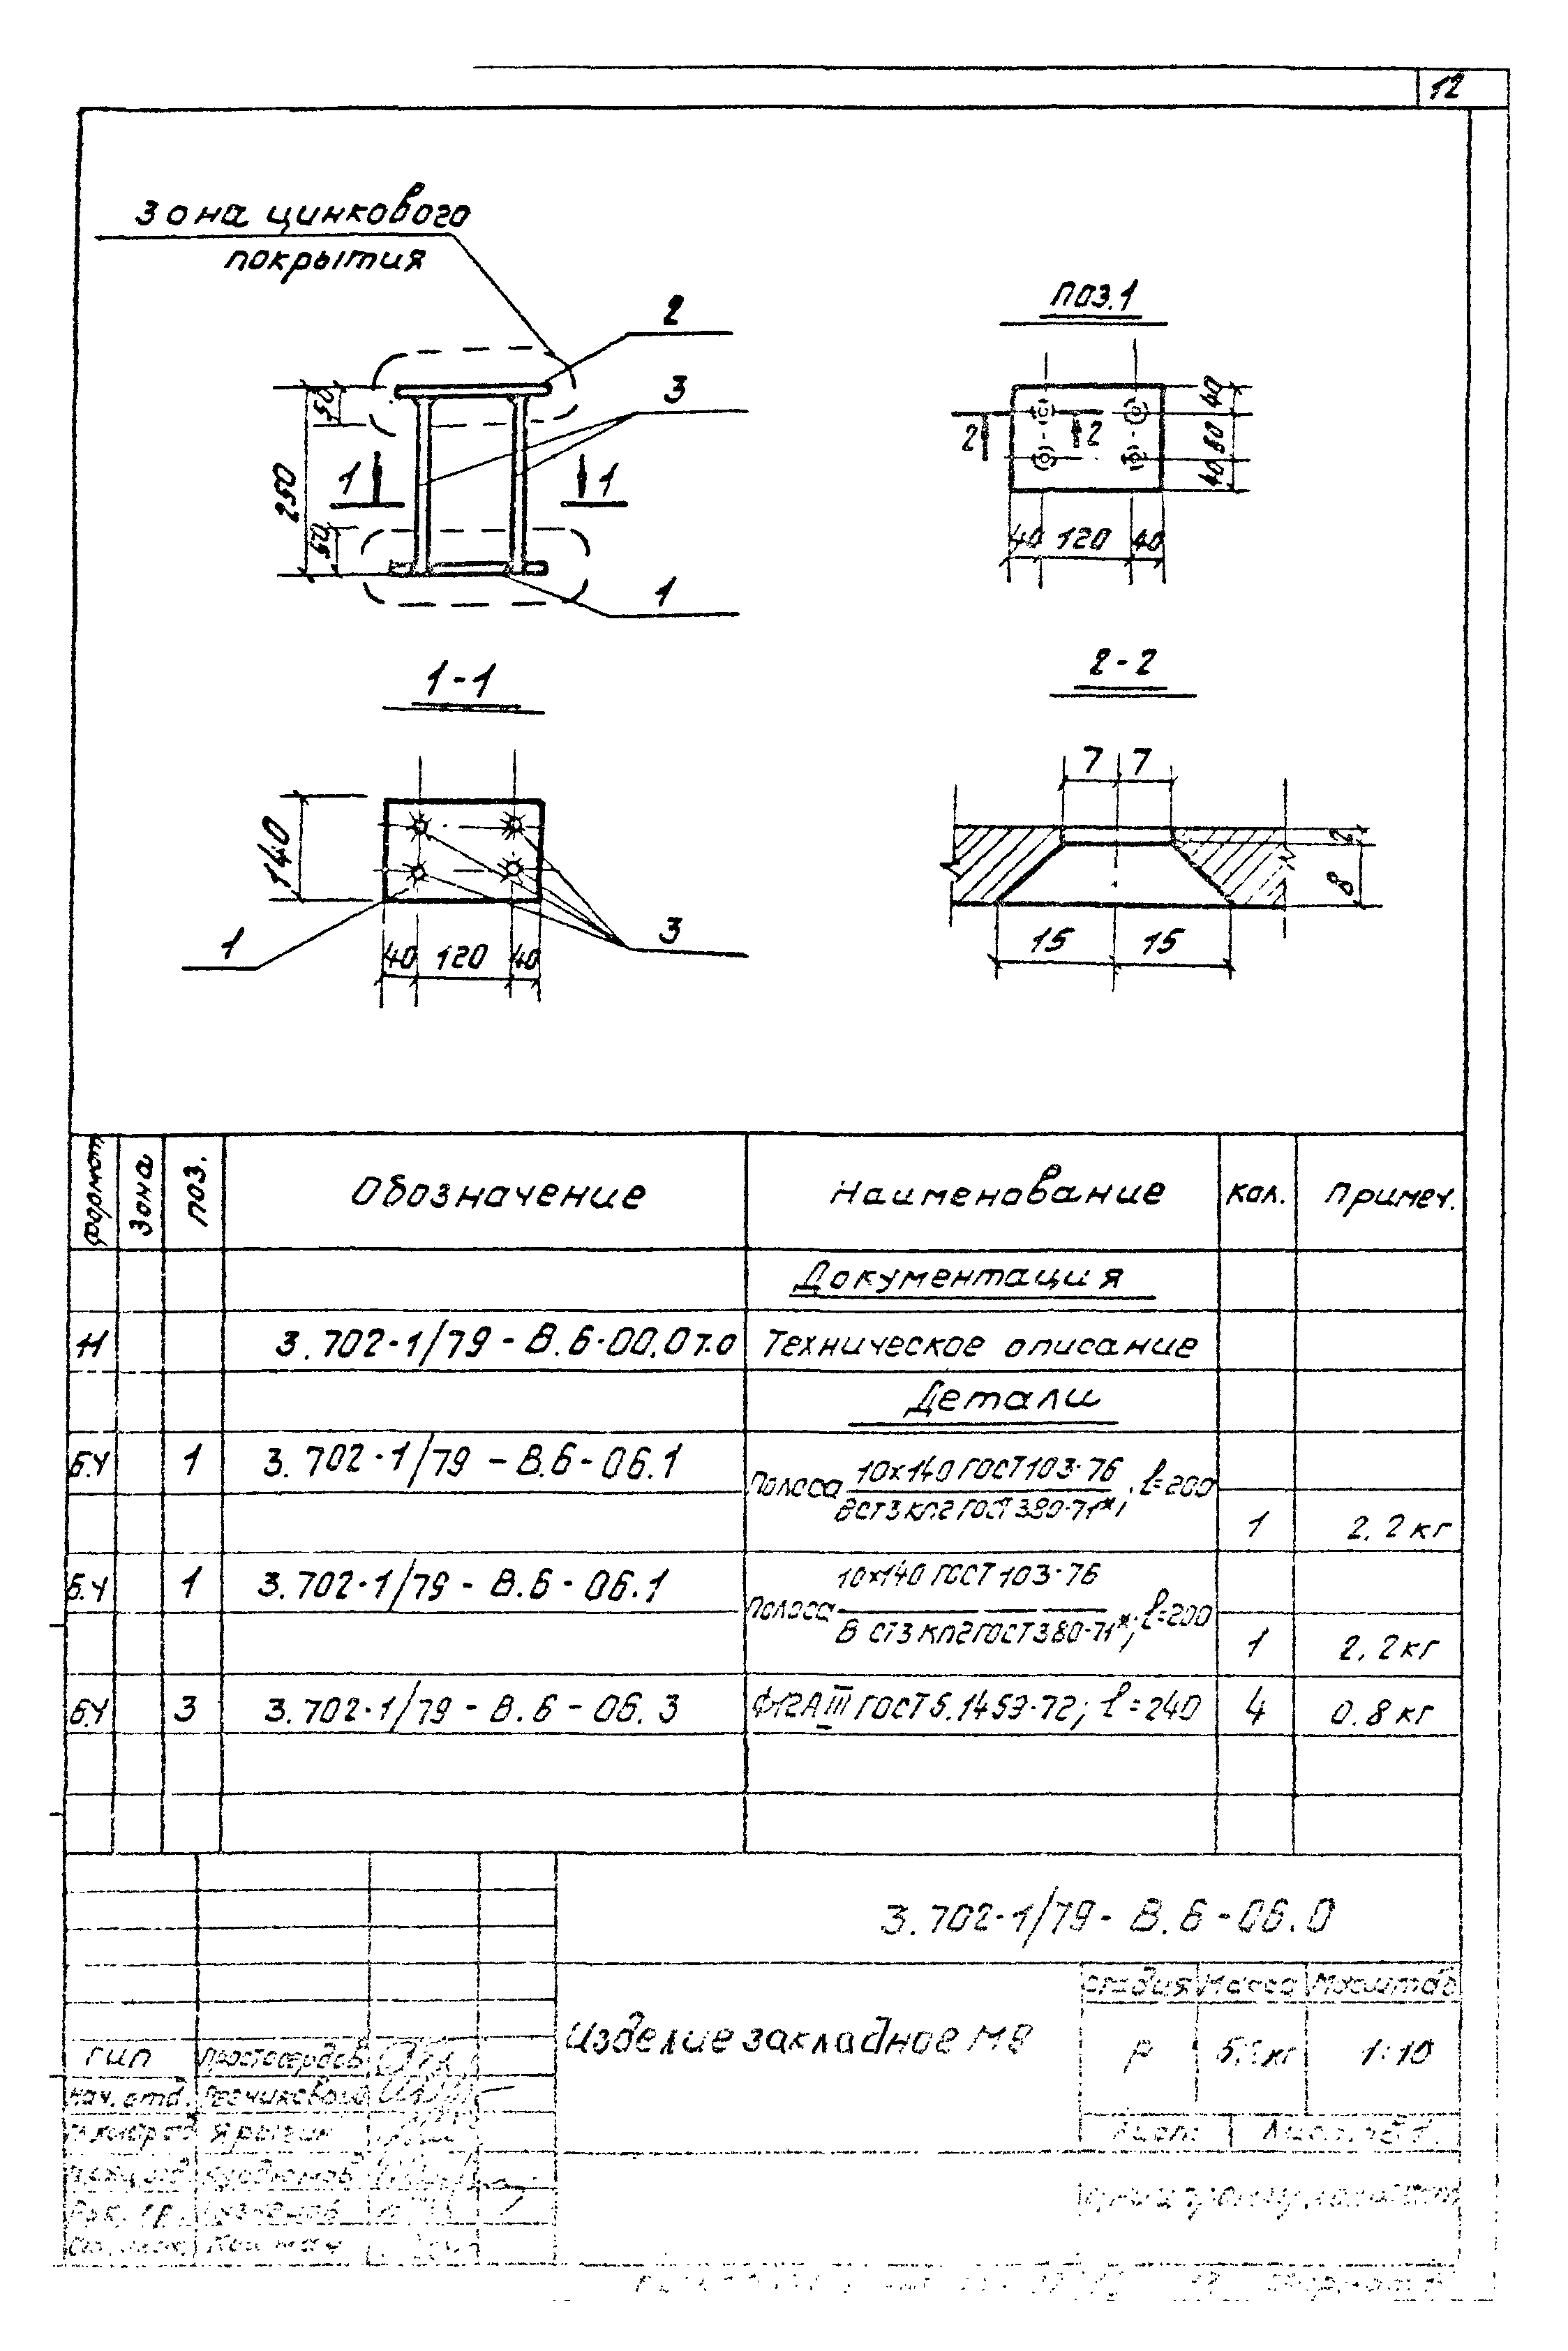 12
Зона цинкового
покрытия
2
3
50
250
1 1
50
1
поз.1
40
2 2
60
40
40 120 40
1-1
140
1
40 120 40
3
2-2
7 7
2
8
15 15
формат Зона поз. Обозначение Наименование кол. Примеч.
Документация
Н 3.702-1/79-В.6-00.0т.о Техническое описание
Детали
Б.Ч 1 3.702-1/79-В.6-06.1
Полоса 10х140 ГОСТ 103-76
ВСТ3кп2 ГОСТ 380-71*; ℓ=200
1 2,2кг
Б.Ч 1 3.702-1/79-В.6-06.1
Полоса 10х140 ГОСТ 103-76
В СТ3 КП2 ГОСТ 380-71*; ℓ=200
1 2,2кг
Б.Ч 3 3.702-1/79-В.6-06.3 Ф12АIII ГОСТ 5.1459-72; ℓ=240 4 0.8кг
3.702-1/79-В.6-06.0
Изделие закладное М8
стадия Масса Масштаб
Р 1:10
ГИП
Нач. отд.
Ярыгин